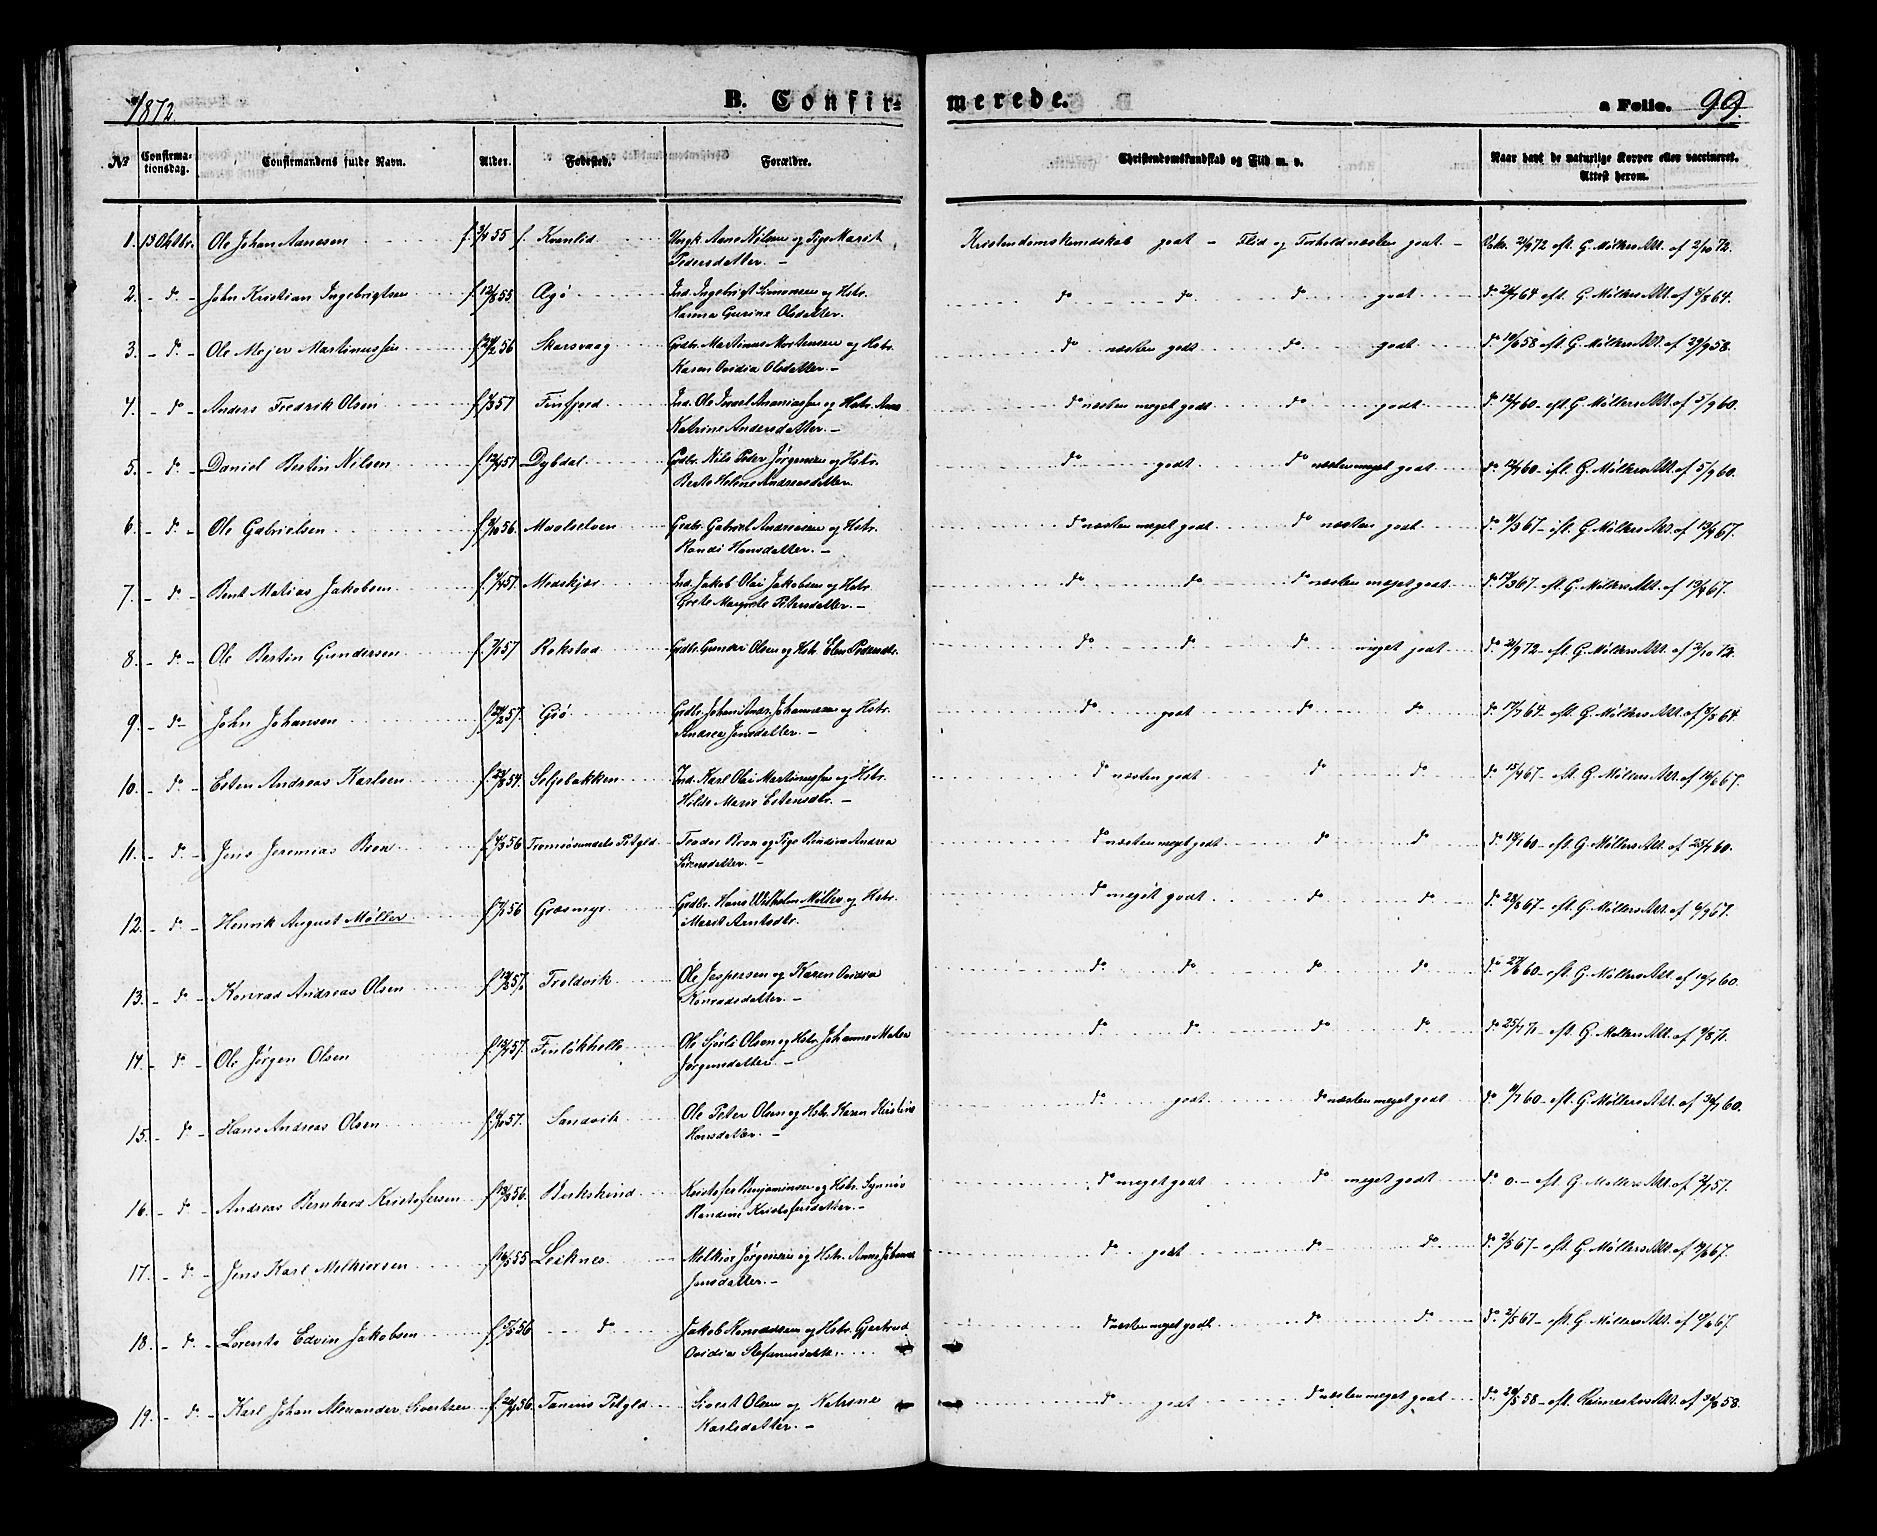 1872.
B. Confir-
merede.
a Folio. 99.
No
Confirma-
tionsdag.
Confirmandens fulde Navn.
Alder.
Fødested.
Forældre.
Christendomskundskab og Flid m. v.
Naar havt de naturlige Kopper eller vaccineret.
Attest herom.
1. 13 Oktbr. Ole Johan Aanesen f. 55 f. Kvanlid Ungk. Aane Nilsen og Pige Marit
Pedersdatter. —
Kristendomskundskab godt — Flid og Forhold næsten godt. — Vakc. 2/9 72 eft. G. Møllers Att. af 2/10 72.
2. - do - John Kristian Ingebrigtsen f. 12/8 55. Agø Ind. Ingebrigt Simonsen og Hstr.
Hanna Gurine Olsdatter.
do do do godt do 64 eft. G. Møllers Att. af 8/8 64.
3. - do - Ole Mejer Martinussen f. 56 Skarsvaag Grdbr. Martinus Mortensen og Hstr.
Karen Ovidia Olsdatter. —
do næsten godt do godt do 58 eft. G. Møllers Att. af 58.
4. - do - Anders Fredrik Olsen f. 57 Finfjord Ind. Ole Israel Ananiassen og Hstr. Ane
Katrine Andersdatter. —
do næsten meget godt do godt do 12/7 60 — eft. G. Møllers Att. af 5/9 60.
5. - do - Daniel Bertin Nilsen f. 57 Dybdal Grdbr. Nils Peter Jørgensen og Hstr.
Berte Helene Andreasdatter.
do godt do næsten meget godt do 12/7 60 — eft. G. Møllers Att. af 5/9 60.
6. - do - Ole Gabrielsen f. 56. Maalselven Grdbr. Gabriel Andreassen og Hstr.
Randi Hansdatter. —
do næsten meget godt do næsten godt do 67 — eft. G. Møllers Att. af 67.
7. - do - Bent Matias Jakobsen f. 57. Medskjær Ind. Jakob Olai Jakobsen og Hstr.
Grete Margrete Petersdatter. —
do do do næsten meget godt do 67 — eft. G. Møllers Att. af 67.
8. - do - Ole Bertin Gundersen f. 57 Rokstad Grdbr. Gunder Olsen og Hstr. Elen Pedersdtr.
do do do meget godt do 2/9 72 — eft. G. Møllers Att. af 2/10 72.
9. - do - John Johansen f. 57. Grø Grdbr. Johan Andr. Johannesen og Hstr.
Andrea Jensdatter. —
do godt do do do 64 — eft. G. Møllers Att. af 8/8 64.
10. - do - Esten Andreas Karlsen f. 57. Seljebakken Ind. Karl Olai Martinussen og Hstr.
Hilde Marie Estensdtr. —
do næsten godt do do do 67 — eft. G. Møllers Att. af 67.
11. - do - Jens Jeremias Bron f. 56 Tromsøsundets Pstgld. Teodor Bron og Pige Bendine Andrea
Sørensdatter. —
do næsten meget godt do do do 60 — eft. G. Møllers Att. af 60.
12. - do - Henrik August Møller f. 56 Græsmyr Grdbr. Hans Wilhelm Møller og Hstr.
Marit Arntsdtr.
do meget godt do do do 67 — eft. G. Møllers Att. af 67.
13. - do - Konrad Andreas Olsen f. 57. Troldvik Ole Jespersen og Karen Ovidia
Konradsdatter. —
do do do do do 60 — eft. G. Møllers Att. af 60.
14. - do - Ole Jørgen Olsen f. 57. Finlökhelle Ole Sjøle Olsen og Hstr. Johanna Malea
Jørgensdatter. —
do do do do do 25/7 71 — eft. G. Møllers Att. af 71.
15. - do - Hans Andreas Olsen f. 57. Sandvik Ole Peter Olsen og Hstr. Karen Kirstine
Hansdatter. —
do godt do næsten meget godt do 60 — eft. G. Møllers Att. af 60.
16. - do - Andreas Bernhard Kristofersen f. 56. Birkstrand Kristofer Benjaminsen og Hstr. Synnøv
Randine Kristofersdatter. —
do meget godt do meget godt do 0. — eft. G. Møllers Att. af 57.
17. - do - Jens Karl Melkiorsen f. 55 Leiknes Melkior Jørgensen og Hstr. Anne Johanna
Jensdatter. —
do godt do do do 2/5 67 — eft. G. Møllers Att. af 67.
18. - do - Lorents Edvin Jakobsen f. 5/5 56 do Jakob Konradsen og Hstr. Gjertrud
Ovidia Stefanusdatter.
do næsten meget godt do do do 2/5 67 — eft. G. Møllers Att. af 67.
19. - do - Karl Johan Alexander Sivertsen f. 56 Tranens Pstgld. Sivert Olsen og Katrine
Karlsdatter. —
do godt do næsten meget godt do 58 — eft. Att. af 58.